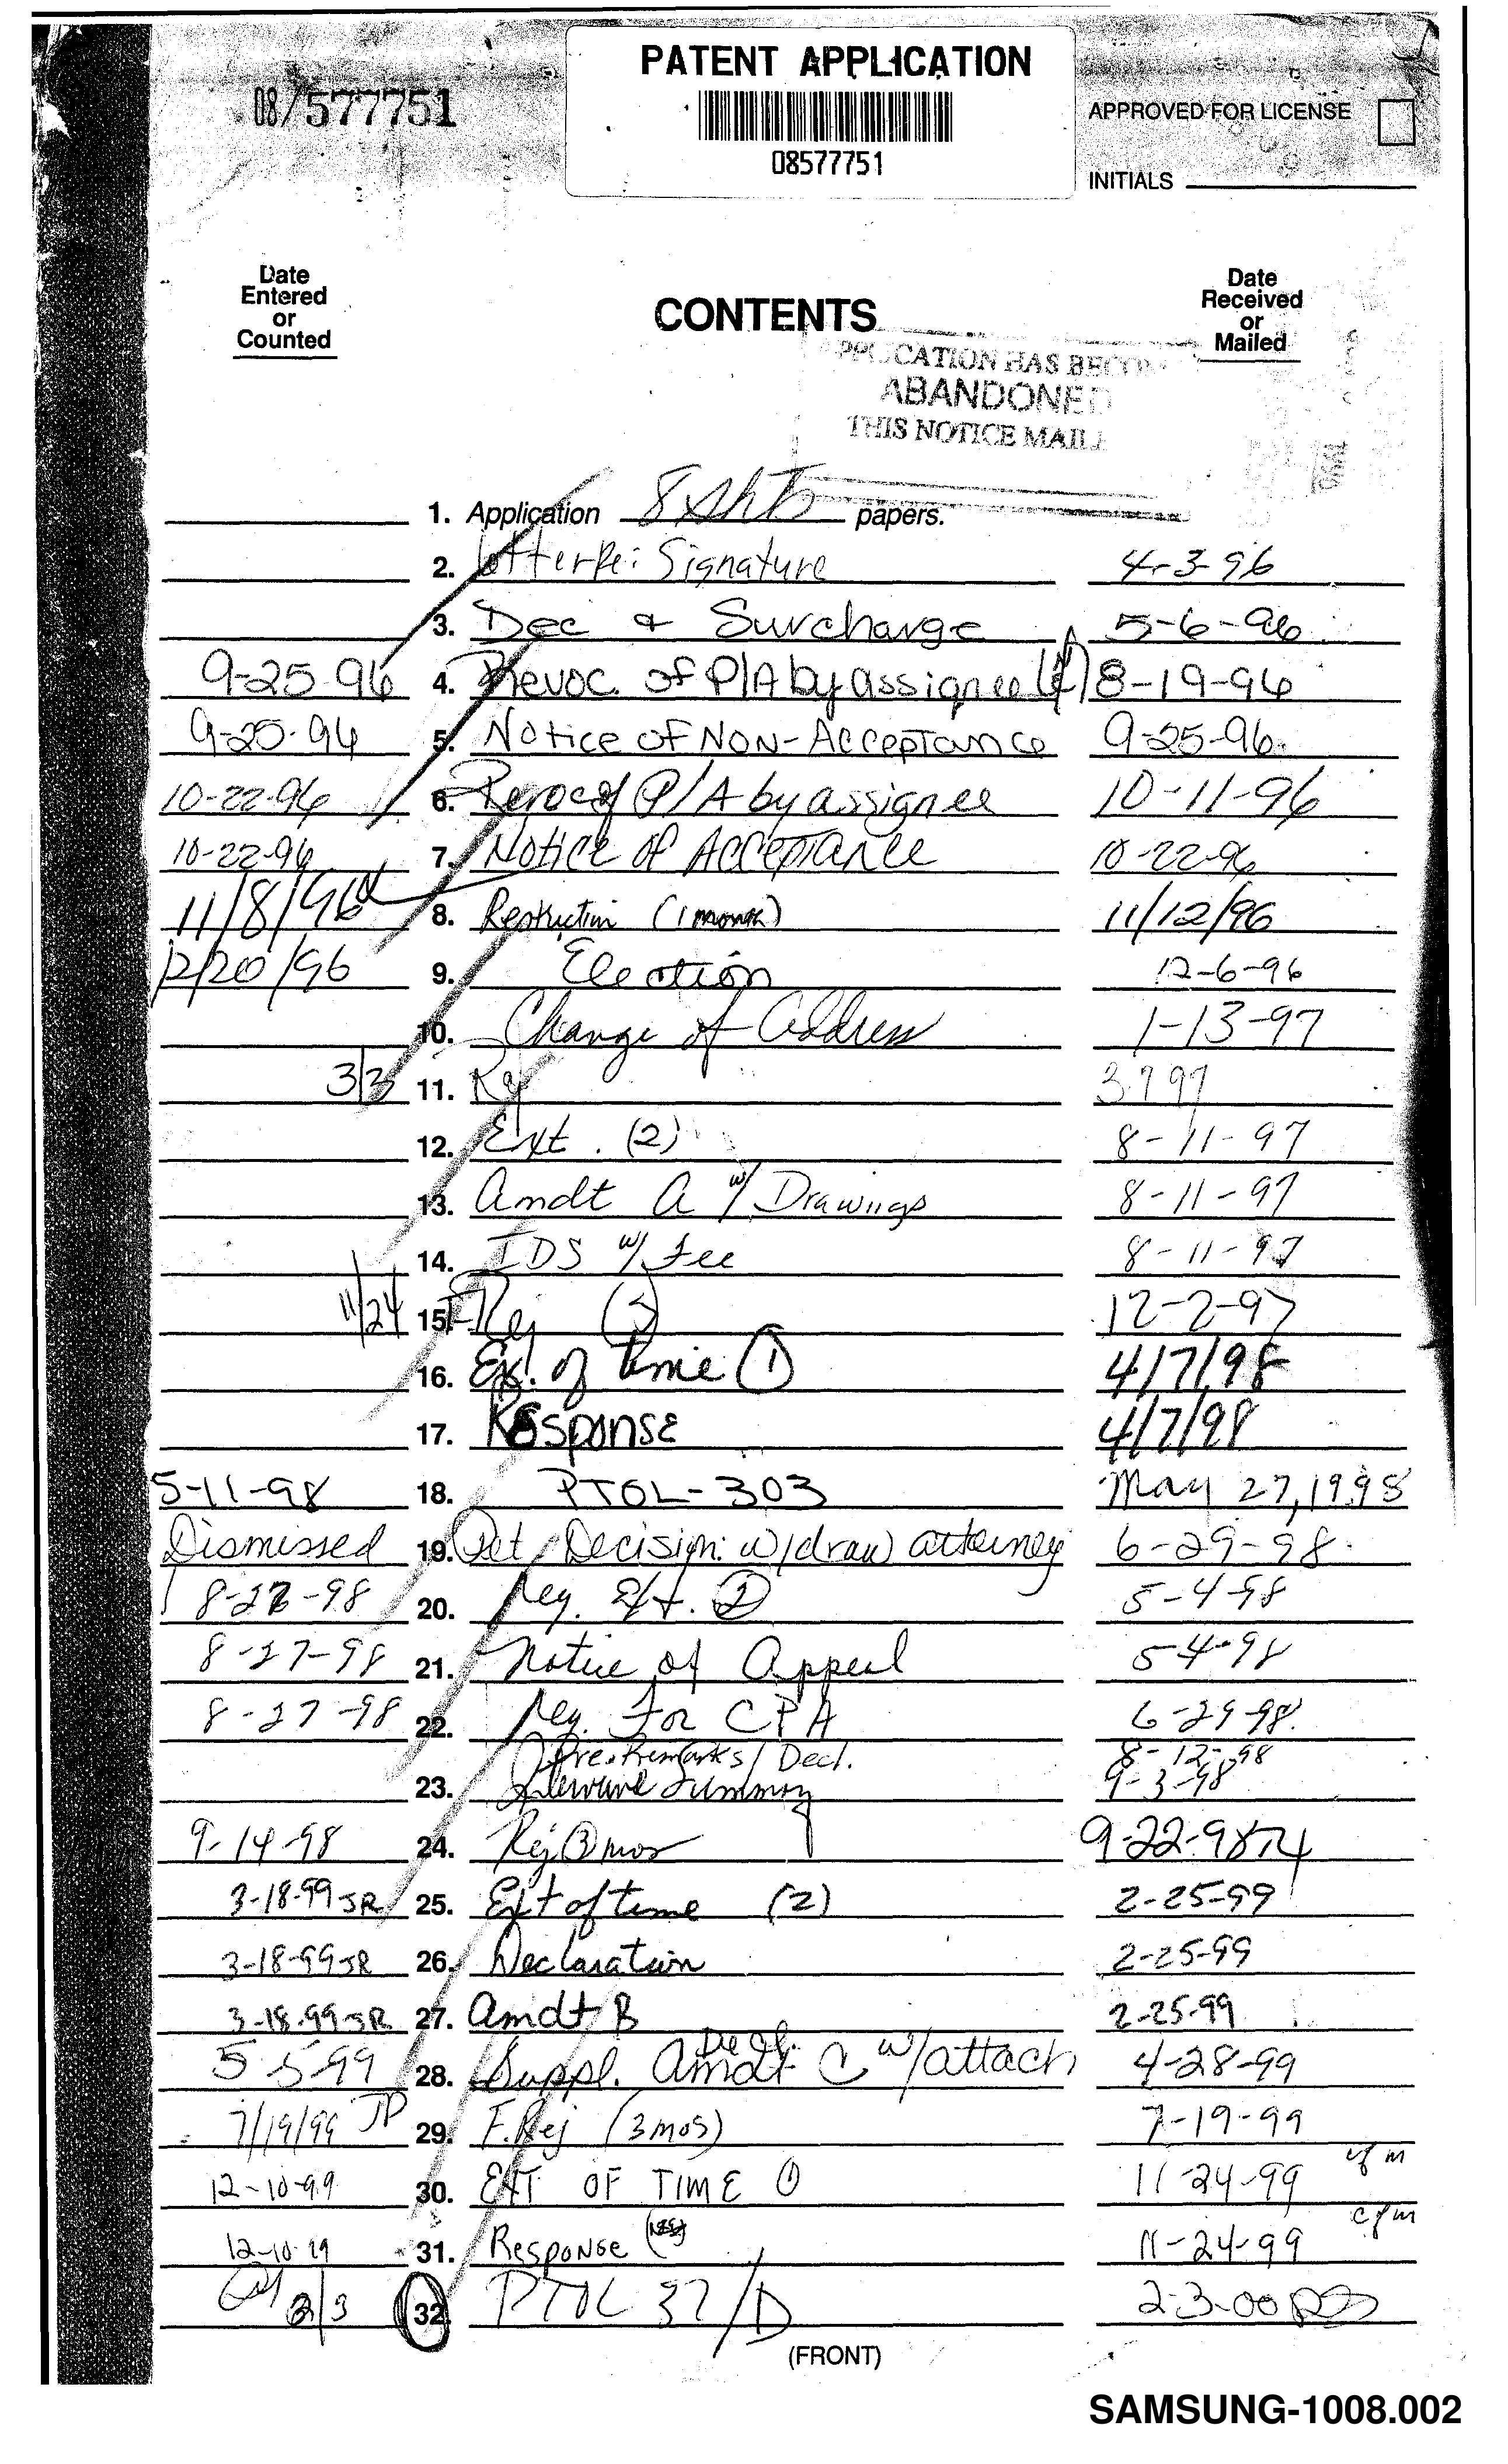 PATENT APPLICATION
08/577751
08577751
APPROVED FOR LICENSE
INITIALS
Date Entered or Counted
CONTENTS
Date Received or Mailed
APPLICATION HAS BECOME
ABANDONED
THIS NOTICE MAILED
1. Application 8 shts papers.
2. Letter Re: Signature 4-3-96
3. Dec & Surcharge 5-6-96
9-25-96 4. Revoc. of P/A by assignee 8-19-96
9-25-96 5. Notice of NON-Acceptance 9-25-96
10-22-96 6. Revoc of P/A by assignee 10-11-96
10-22-96 7. Notice of Acceptance 10-22-96
11/8/96 8. Restriction (1 month) 11/12/96
12/20/96 9. Election 12-6-96
10. Change of Address 1-13-97
3/3 11. Rej 3.7.97
12. Ext. (2) 8-11-97
13. Amdt A w/ Drawings 8-11-97
14. IDS w/ fee 8-11-97
11/24 15. F. Rej (3) 12-2-97
16. Ex. of time (1) 4/7/98
17. Response 4/7/98
5-11-98 18. PTOL-303 May 27, 1998
Dismissed 19. Pet Decision: w/draw attorney 6-29-98
8-27-98 20. Req. Ext. 5-4-98
8-27-98 21. Notice of Appeal 5-4-98
8-27-98 22. Req. For CPA 6-29-98
Pre. Remarks / Decl. 8-12-98
23. Interview Summary 9-3-98
9-14-98 24. Rej (3) mos 9-22-98
3-18-99 JR 25. Ext of time (2) 2-25-99
3-18-99 JR 26. Declaration 2-25-99
3-18-99 JR 27. Amdt B 2-25-99
5-5-99 28. Suppl. Amdt C w/attach 4-28-99
7/19/99 JP 29. F. Rej (3 mos) 7-19-99
12-10-99 30. EXT OF TIME (1) 11-24-99 cfm
12-10-99 31. Response 11-24-99 cfm
2/3 32. PTOL 37/D 2-3-00
(FRONT)
SAMSUNG-1008.002